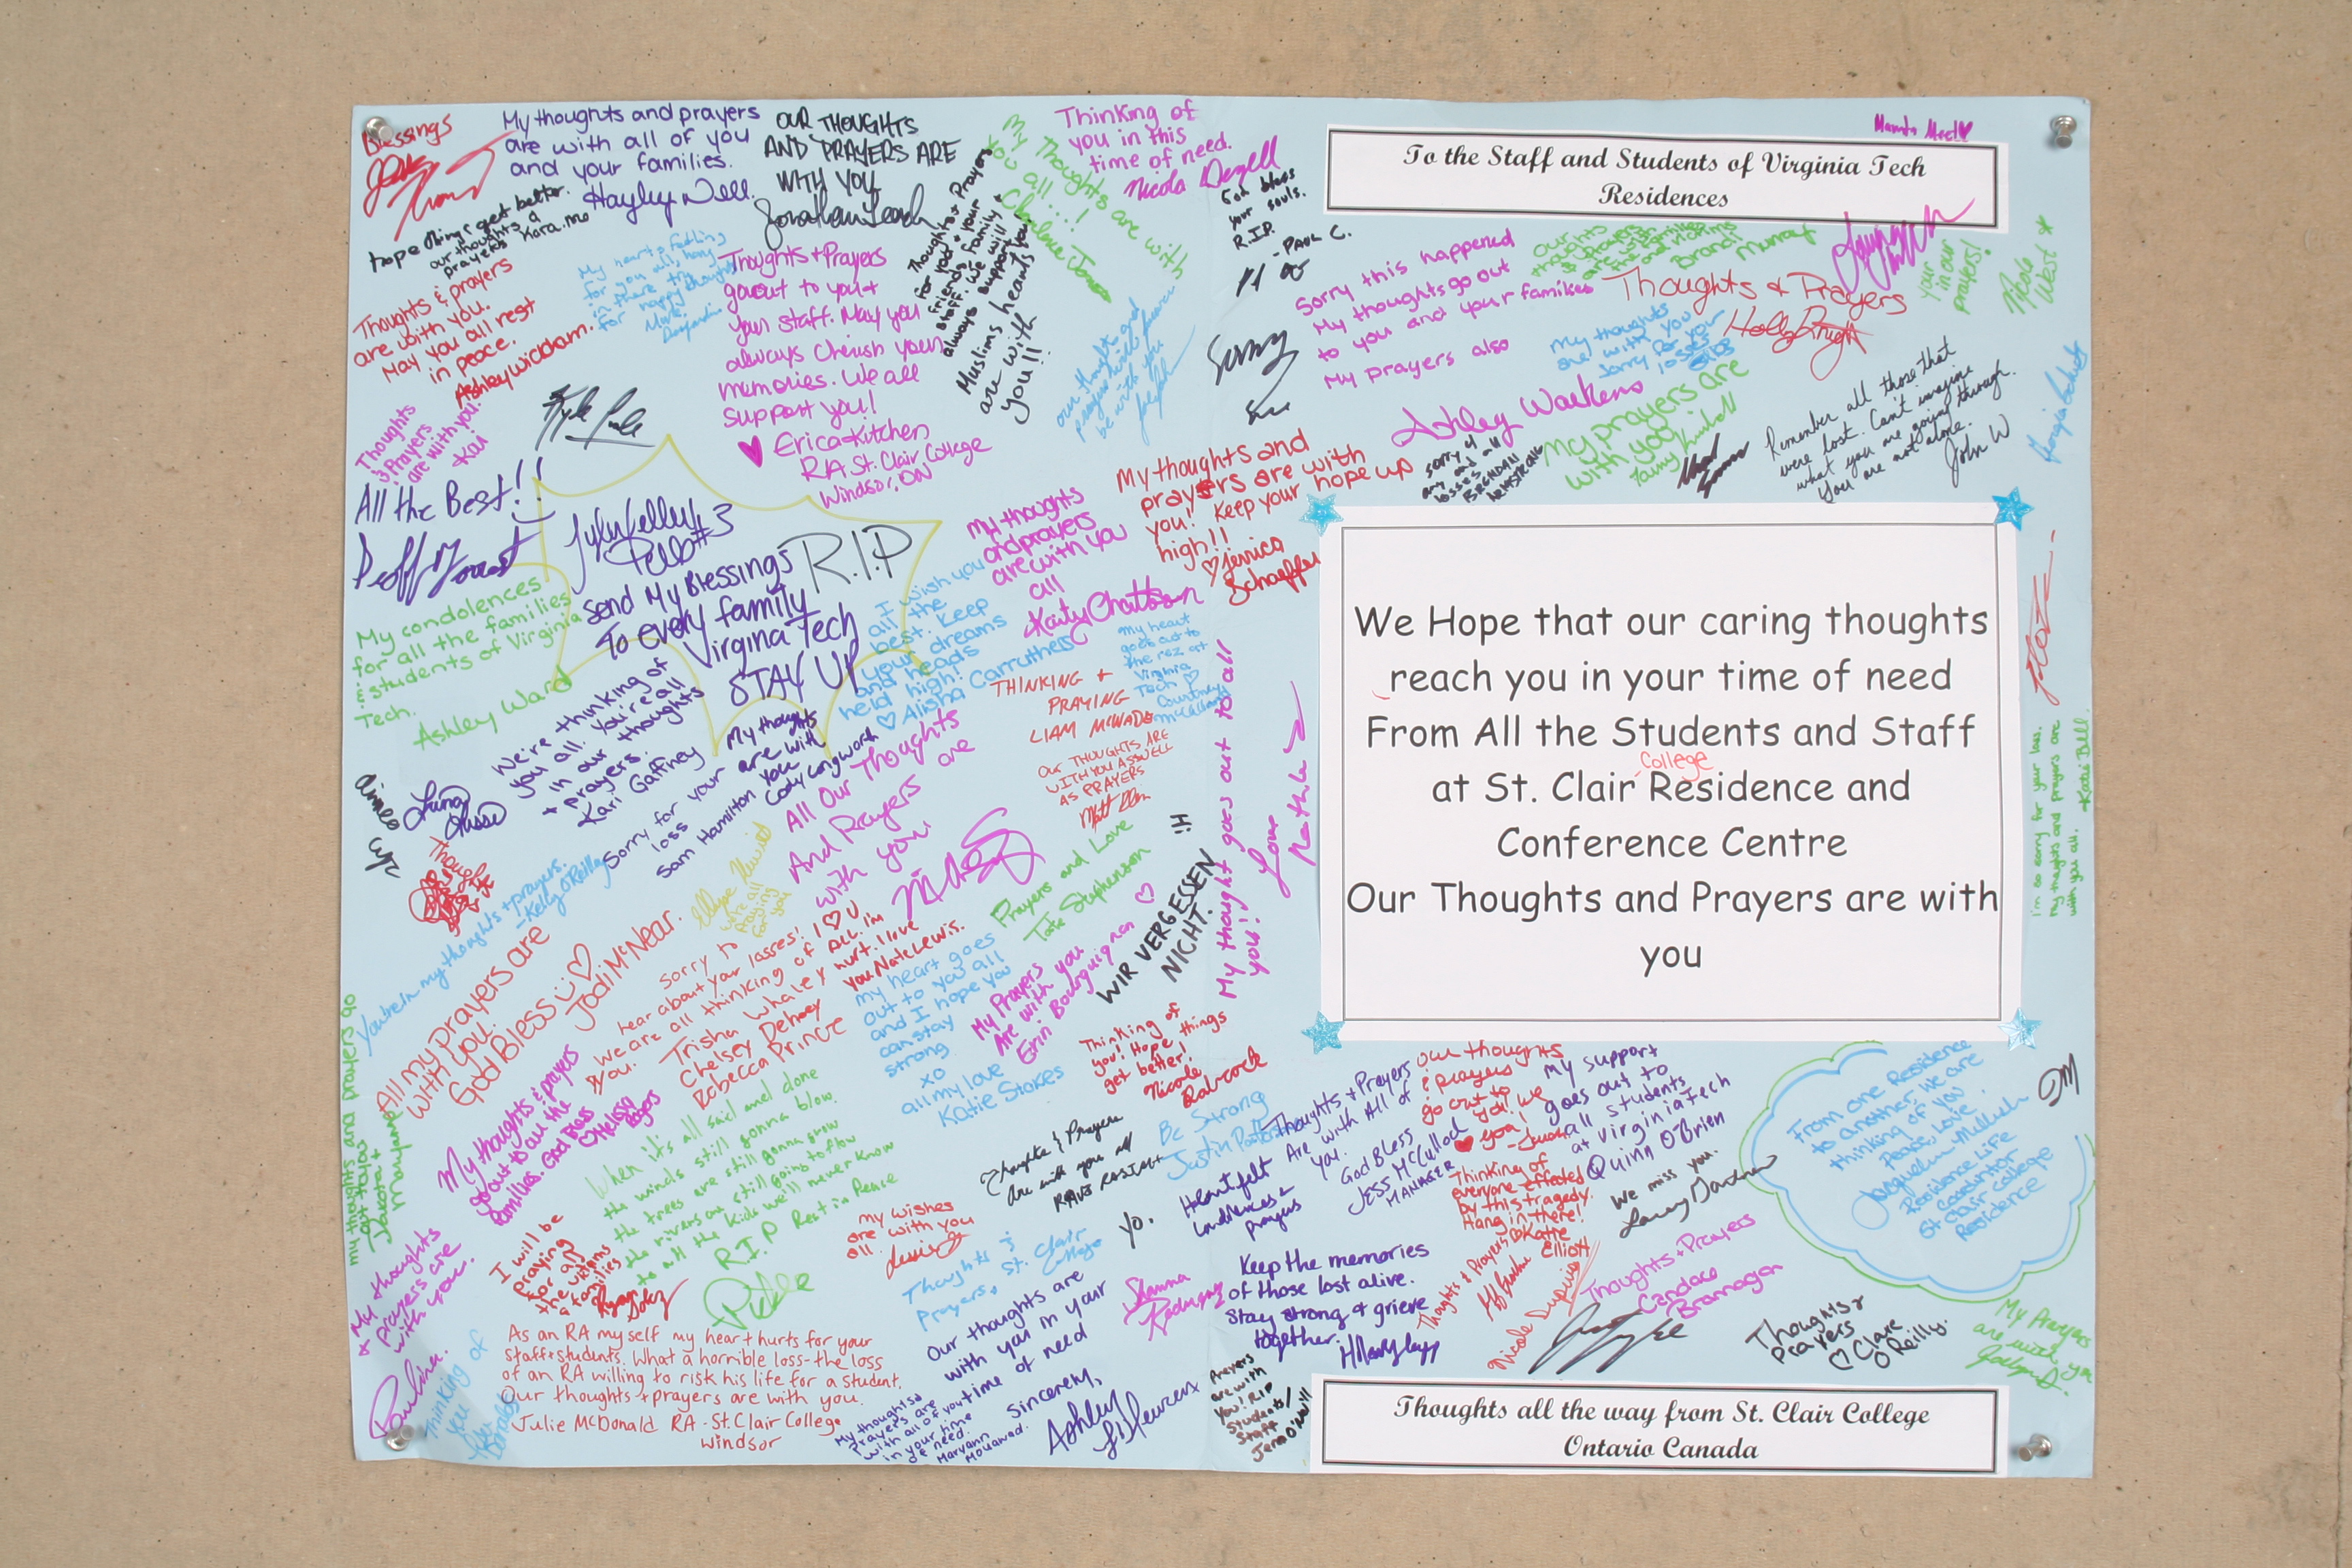 Blessings
My thoughts and prayers
are with all of you
and your families.
Hayley Nell.
OUR THOUGHTS
AND PRAYERS ARE
WITH YOU
Jonathan Leach
My Thoughts are with
you all...!
Thinking of
you in this
time of need.
Nicola Dezell
God bless
your souls.
R.I.P.
-PAUL C.
hope things get better.
our thoughts &
prayers Kara.mo
Thoughts & prayers
are with you.
May you all rest
in peace.
Ashley Wickham.
Thoughts + Prayers
go out to you +
your staff. May you
always cherish your
memories. We all
support you!
Erica Kitchen
RA St. Clair College
Windsor, ON
Thoughts + Prayers
for you + your
friends, family +
staff. We will
always support you!
Muslims hearts
are with
you!!
Sorry
Thoughts
& Prayers
are with you.
Kai
All the Best!!
Geoff Forrest
My condolences
for all the families
& students of Virginia
Tech.
Ashley Ward
Tyler Kelley #3
send My Blessings
To every family
Virgina Tech
STAY UP
R.I.P
I wish you
all the
best. Keep
your dreams
and heads
held high!
Alisha Carruthers
my thoughts
and prayers
are with you
all
Katy Chattson
My thoughts and
prayers are with
you! Keep your hope up
high!!
Jessica
Schaeffer
My heart
goes out to
the rez at
Virginia
Tech
THINKING +
PRAYING
LIAM MCWADE
OUR THOUGHTS ARE
WITH YOU ASWELL
AS PRAYERS
We're thinking of
you all. You're all
in our thoughts
+ prayers.
Kari Gaffney
My thoughts
are with
you
Cody Longworth
Sorry for your
loss
Sam Hamilton
All Our Thoughts
And Prayers are
with you
Prayers and Love
Tate Stephenson
WIR VERGESSEN
NICHT.
My thought goes out to all
you!
Love
You're in my thoughts + prayers.
-Kelly O'Reilly
All my prayers are
with you.
God Bless
Jodi McNear.
Sorry to
hear about your losses! I ♡ U
We are all thinking of ALL. I'm
you.
Trisha Whaley hurt. I love
you. Nate Lewis.
Chelsey Dehoey
Rebecca Prince
my heart goes
out to you all
and I hope you
can stay
strong
xo
all my love
Katie Stokes
My Prayers
Are with you
Erin Bourguignon
Thinking of
you! Hope things
get better!
Nicole
Babcock
My thoughts & prayers
go out to all the
families. God Bless
Melissa
Rogers
my thoughts and prayers go
out to you
When it's all said and done
the winds still gonna blow.
the trees are still gonna grow
the rivers are still going to flow
to all the kids we'll never know
R.I.P Rest in Peace
Pickle
I will be
praying
for all
the victims
& families
My thoughts
& prayers are
with you.
Paulina.
Thinking of
you
my wishes
are with you
all.
Thoughts & Prayers
Are with you all
Be Strong
Thoughts &
Prayers, St. Clair
College
yo.
As an RA myself my heart hurts for your
staff + students. What a horrible loss - the loss
of an RA willing to risk his life for a student.
Our thoughts + prayers are with you.
Julie McDonald RA - St. Clair College
Windsor
My thoughts &
Prayers are
with all of you
in your time
of need.
Maryann
Mouawad.
Our thoughts are
with you in your
time of need
Sincerely,
Ashley
Shanna
Rodriguez
Heartfelt
condolences &
prayers
Thoughts + Prayers
Are with All of
you.
God Bless
JESS McCulloch
MANAGER
our thoughts
& prayers
go out to
you! we
♥ you!
My support
goes out to
all students
at Virginia Tech
Quinn O'Brien
Thinking of
everyone effected
by this tragedy.
Hang in there!
Katie
Elliott
We miss you.
Keep the memories
of those lost alive.
Stay strong & grieve
together.
Prayers
are with
you! RIP
Students/
Staff
Jenn O'Neill
Nicole Dupuis
Thoughts + Prayers
Candace
Brannagan
Thoughts &
Prayers
♡ Clare
O'Reilly.
My Prayers
are with you
From one Residence
to another, we are
thinking of you
Peace, Love.
Residence Life
Coordinator
St Clair College
Residence
Sorry this happened
My thoughts go out
to you and your families
My prayers also
Ashley Waekens
Brandi Murray
Thoughts & Prayers
your
in our
prayers!
Nicole
West *
my thoughts
are with you
sorry for your
losses
My prayers are
with you
sorry 4
any and all
losses
BRENDAN
ARMSTRONG
Remember all those that
were lost. Can't imagine
what you are going through.
You are not alone.
John W
I'm so sorry for your loss.
My thoughts and prayers are
with you all.
-Katie Bell.
To the Staff and Students of Virginia Tech
Residences
We Hope that our caring thoughts
reach you in your time of need
From All the Students and Staff
College
at St. Clair Residence and
Conference Centre
Our Thoughts and Prayers are with
you
Thoughts all the way from St. Clair College
Ontario Canada